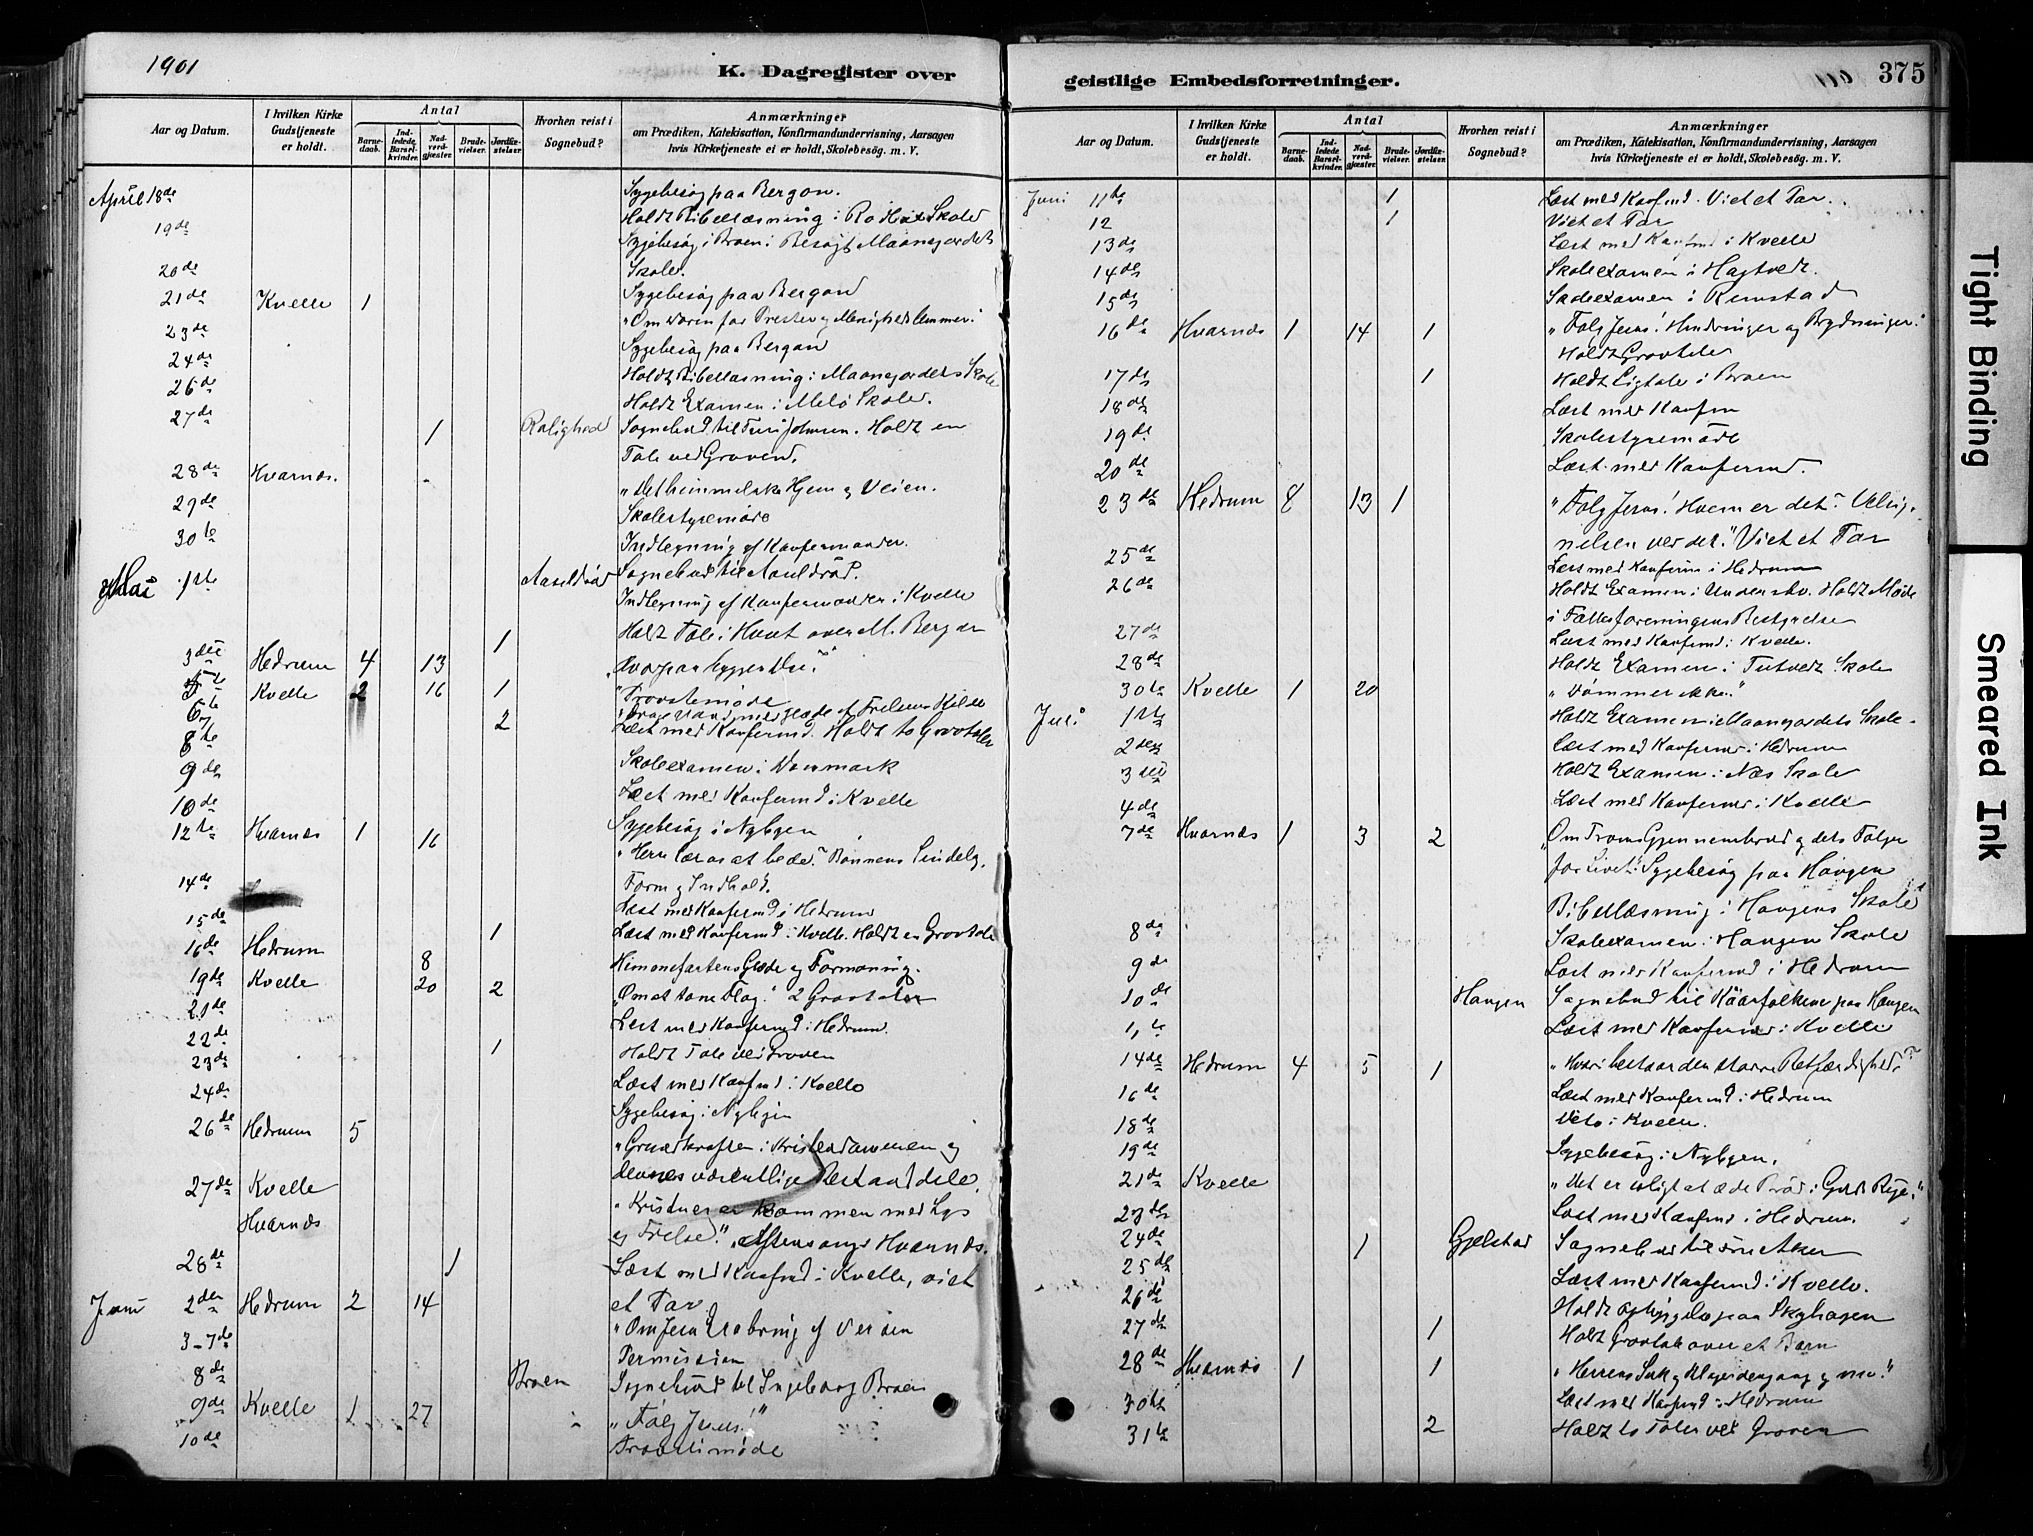 1901
K. Dagregister over
Aar og Datum.
I hvilken Kirke Gudstjeneste er holdt.
Antal
Barnedaab.
Indledede Barselkvinder.
Nadverdgjester.
Brudevielser.
Jordfæstelser.
Hvorhen reist i Sognebud?
Anmærkninger
om Prædiken, Katekisation, Konfirmandundervisning, Aarsagen
hvis Kirketjeneste ei er holdt, Skolebesög. m. V.
April 18de Sygebesøg paa Bergan.
Holdt Bibellæsning i Skole
19de Sygebesøg i Broen. Besøgt Maanejordets
20de Skole.
Sygebesøg paa Bergan
21de Kvelle 1 "Om for Prester og Menighedslemmer."
23de Sygebesøg paa Bergan
24de Holdt Bibellæsning i Maanejordets Skole
26de Holdt Examen i Melø Skole.
27de 1 Rolighed Sognebud til Johnsen. Holdt en
Tale ved Graven.
28de Hvarnes. "Det himmelske Hjem og Veien.
29de Skolestyremøde
30te Indlegning af Konfirmander.
Mai 1ste Sognebud til
Indlegning af Konfirmander i Kvelle
1 Holdt Tale i over M. Bergan
3die Hedrum 4 13
5te Kvelle 2 16 1 Provstemøde
6te
2 Læst med Konfirmd. Holdt to Gravtaler
8de
Skoleexamen i Danmark
9de
Læst med Konfirmd i Kvelle
10de
12te Hvarnes 1 16 Sygebesøg i Nybyen
"Herre lær os at bede." Bønnens Sindelag,
14de Form og Indhold.
Læst med Konfirmd i Hedrum
15de 1 Læst med Konfirmd i Kvelle. Holdt en Gravtale
16de Hedrum 8 Himmelfartens Glæde og Formaning.
19de Kvelle 20 2 2 Gravtaler
21de
Læst med Konfirmd i Hedrum
22de 1 Holdt Tale ved Graven
23de Læst med Konfmd i Kvelle
24de Sygebesøg i Nybyen
26de Hedrum 5 "Grundkraften i Kristendommen og
dennes væsentlige Bestanddele.
27de Kvelle "Kristus er kommen med Lys
Hvarnes og Frelse." Aftensang i Hvarnes.
28de 1 Læst med Konfmd i Kvelle, viet
et Par
Juni 2den Hedrum 2 14 "Om
3-7de Permission
8de Broen Sognebud til Ingeborg Broen
9de Kvelle 1 27 "Følg Jesus!"
10de Provstimøde
geistlige Embedsforretninger.
375
Aar og Datum.
I hvilken Kirke Gudstjeneste er holdt.
Antal
Barnedaab.
Indledede Barselkvinder.
Nadverdgjester.
Brudevielser.
Jordfæstelser.
Hvorhen reist i Sognebud?
Anmærkninger
om Prædiken, Katekisation, Konfirmandundervisning, Aarsagen
hvis Kirketjeneste ei er holdt, Skolebesög. m. V.
Juni 11te 1 Læst med Konfmd. Viet et Par.
12 1 Viet et Par
13de Læst med Konfmd i Kvelle
14de Skoleexamen i Hagtvedt.
15de Skoleexamen i Rimstad
16de Hvarnes 1 14 1 "Følg Jesus! Hindringer og
Holdt Gravtale
17de 1 Holdt Ligtale i Broen
18de Læst med Konfm
19de Skolestyremøde
20de Læst med Konfirmd.
23de Hedrum 8 13 1 "Følg Jesus! Hvem er det? Velsig-
nelsen ved det." Viet et Par
25de Læst med Konfirm i Hedrum
26de Holdt Examen i Holdt Møde
i Fællesforeningens Bestyrelse
27de Læst med Konfmd i Kvelle.
28de Holdt Examen i Tutvedt Skole
30te Kvelle 1 20 "Dømmer ikke."
Juli 1ste Holdt Examen i Maanejordets Skole.
2den Læst med Konfirmd i Hedrum
3die Holdt Examen i Næs Skole
4de Læst med Konfirmd i Kvelle
7de Hvarnes 1 3 2 "Om Troens Gjennembrud og dets Følger
for Livet." Sygebesøg paa Haugen
Bibellæsning i Haugens Skole
8de Skoleexamen i Haugen Skole
9de Læst med Konfirmd i Hedrum
10de Haugen Sognebud til Kaarfolkene paa Haugen
11te Læst med Konfirmd i Kvelle
14de Hedrum 4 5 1 "Hvori bestaar den større Retfærdighed?"
16de Læst med Konfirmd i Hedrum
18de Dito i Kvelle.
19de Sygebesøg i Nybyen.
21de Kvelle "Det er saligt at æde Brød i Guds Rige."
23de Læst med Konfmd i Hedrum.
24de 1 Gjelstad Sognebud til Aker
25de Læst med Konfirmd i Kvelle.
26de Holdt paa Skyhagen
27de 1 Holdt Gravtale over et Barn
28de Hvarnes 1 1 "Herrens Suk og
30te Læst med Konfmd i Hedrum
31te 2 Holdt to Taler ved Graven
Tight Binding
Smeared Ink